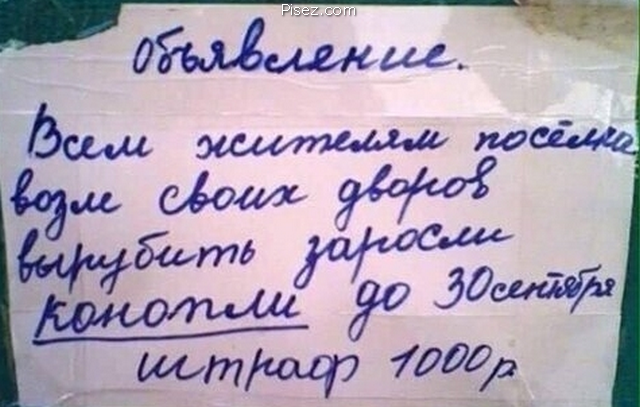 Pisez.com
Объявление.
Всем жителям посёлка
возле своих дворов
вырубить заросли
конопли до 30 сентября
штраф 1000 р